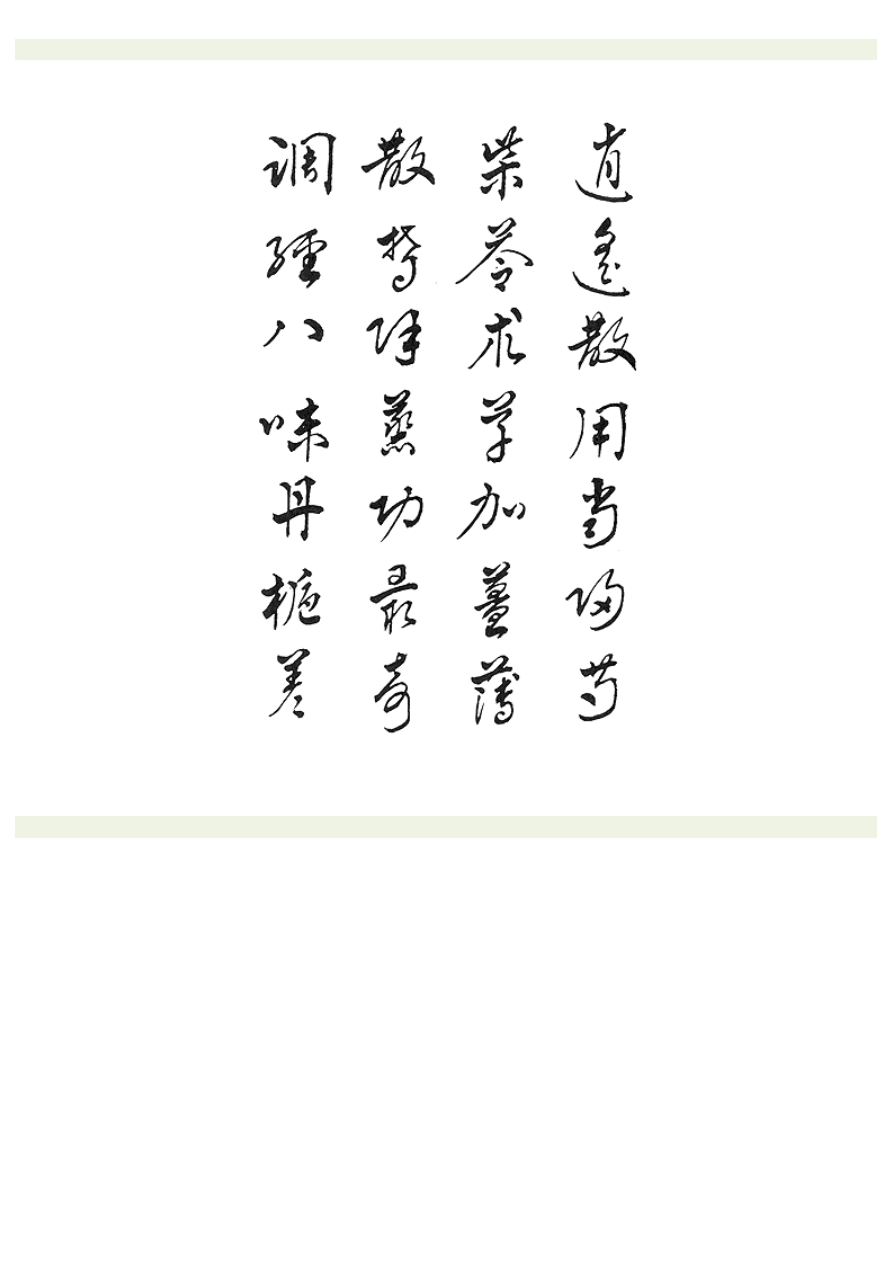 逍遙散用当归芍
柴苓术草加薑薄
散鬱除蒸功最奇
调經八味丹梔着